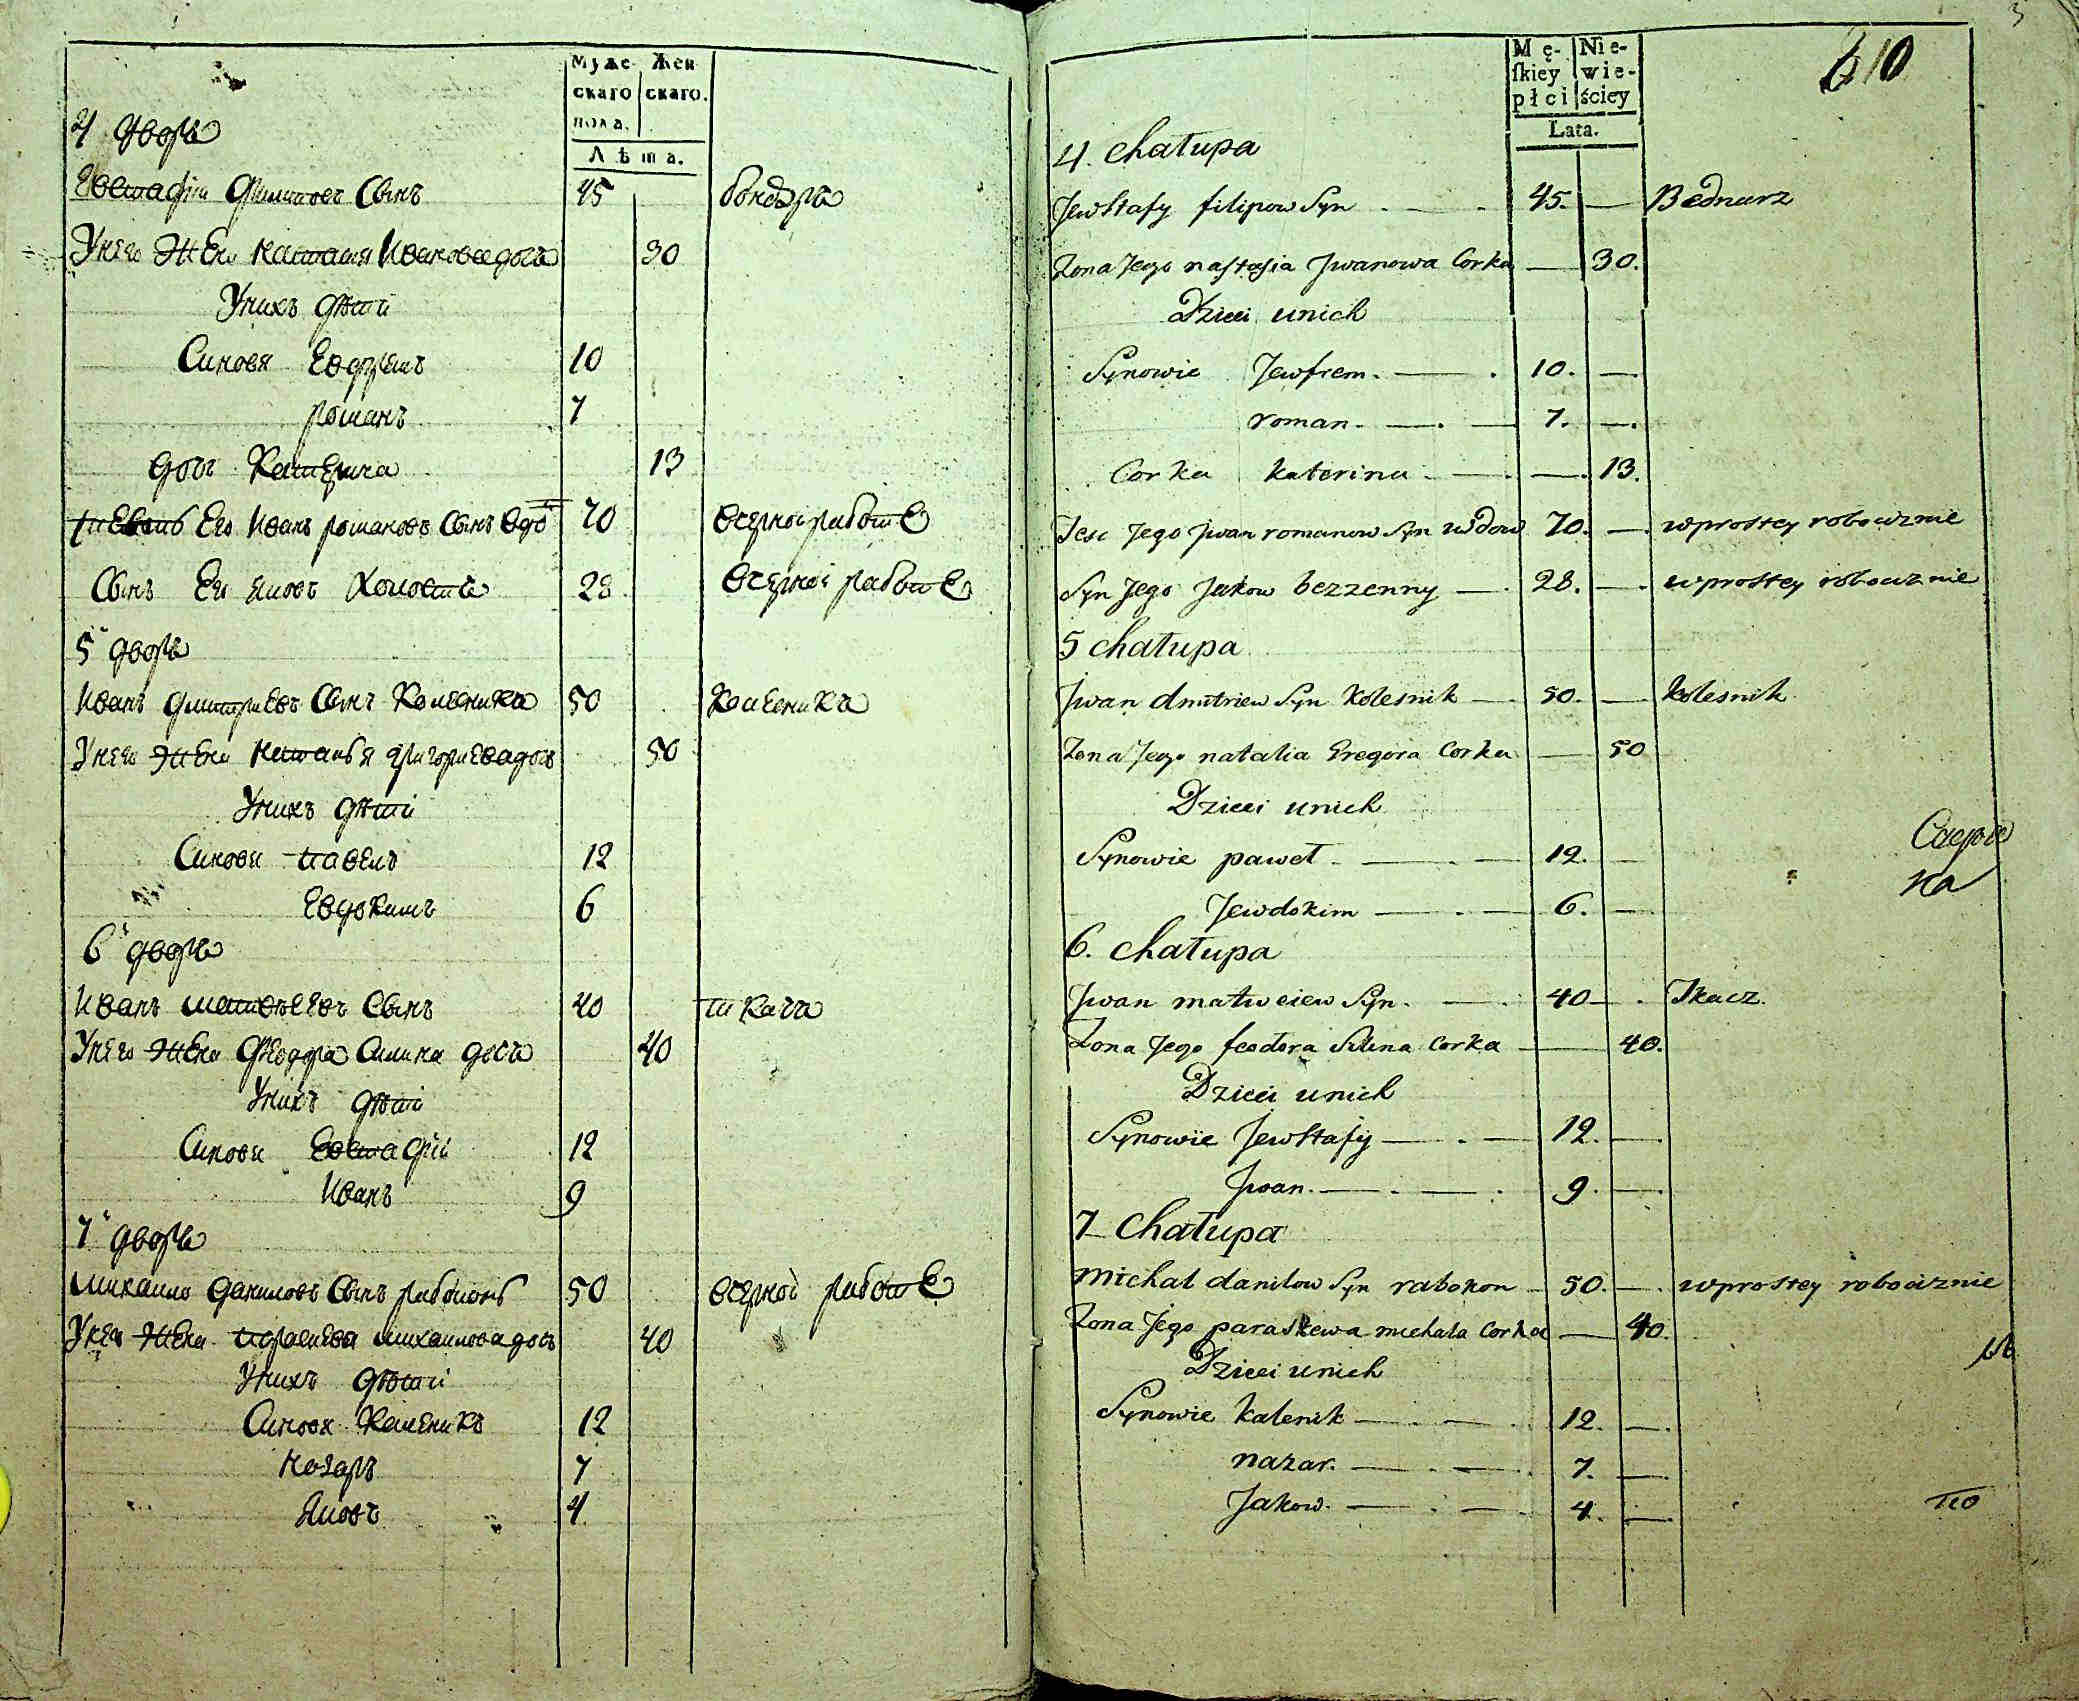 Муже-
скаго
пола.
Жен-
скаго.
Лѣта.
4 дворъ
Евстафіи Филиповъ Сынъ 45 бондаръ
Унего Жена Настасия Иванова дочъ 30
Унихъ дѣти
Синовя Евфремъ 10
романъ 7
дочъ Катерина 13
Иванъ романовъ Сынъ 70 вчерной работе
Сынъ Его Яковъ Холостъ 28 вчерной работе
5 дворъ
Иванъ дмитриевъ Сынъ Колесникъ 50 Колесникъ
Унего Жена Наталъя григориева дочъ 50
Унихъ дѣти
Синовя павелъ 12
Евдокимъ 6
6 дворъ
Иванъ матвѣевъ Сынъ 40 ткачъ
Унего Жена Феодора Силина дочъ 40
Унихъ дѣти
Синовя Евстафіи 12
Иванъ 9
7 дворъ
михаило даниловъ Сынъ рабоконъ 50 вчерной работе
Унего Жена параскева михаилова дочъ 40
Унихъ дѣти
Синовя Каленикъ 12
Назаръ 7
Яковъ 4
610
Mę-
ſkiey
płci
Nie-
wie-
ściey
Lata.
4. chałupa
Jewstafy filipow Syn 45. Bednarz
Zona Jego nastasia Jwanowa Corka 30.
Dzieci unich
Synowie Jewfrem. 10.
roman. 7.
Corka katerina 13.
Tesc Jego Jwan romanow Syn wdow 70. wprostey roboциznie
Syn Jego Jakow bezzenny 28. wprostey robociznie
5 chałupa
Jwan dmitriew Syn kolesnik 50. kolesnik
Zona Jego natalia Gregora Corka 50
Dzieci unich
Synowie paweł 12.
Jewdokim 6.
6. chałupa
Jwan matweiew Syn. 40 Tkacz.
Zona Jego feodora Silina Corka 40.
Dzieci unich
Synowie Jewstafiy 12.
Jwan. 9.
7 Chałupa
michał daniłow Syn rabokon 50. wprostey robociznie
Zona Jego paraskewa michała Corka 40.
Dzieci unich
Synowie kalenik 12.
nazar. 7.
Jakow. 4.
на
по